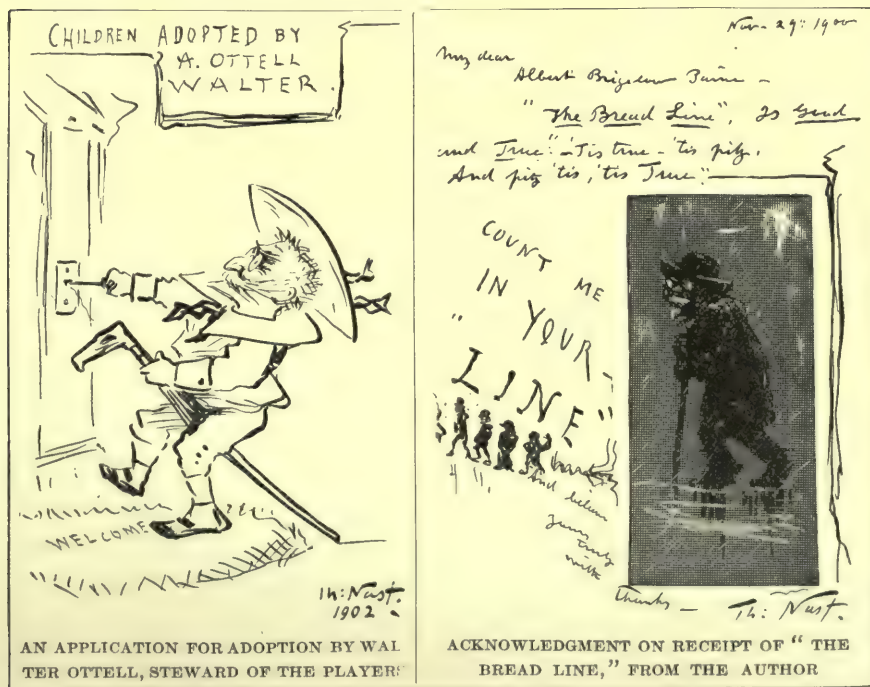 CHILDREN ADOPTED BY
A. OTTELL
WALTER.
WELCOME
Th: Nast.
1902
AN APPLICATION FOR ADOPTION BY WAL
TER OTTELL, STEWARD OF THE PLAYERS
Nov- 29: 1900
My dear
Albert Bigelow Paine -
"The Bread Line", Is Good
and True". 'Tis true - 'tis pity.
And pity 'tis, 'tis True"
COUNT ME
IN YOUR
"LINE"
And believe
Yours
truly
with
thanks -
Th: Nast.
ACKNOWLEDGMENT ON RECEIPT OF "THE
BREAD LINE," FROM THE AUTHOR